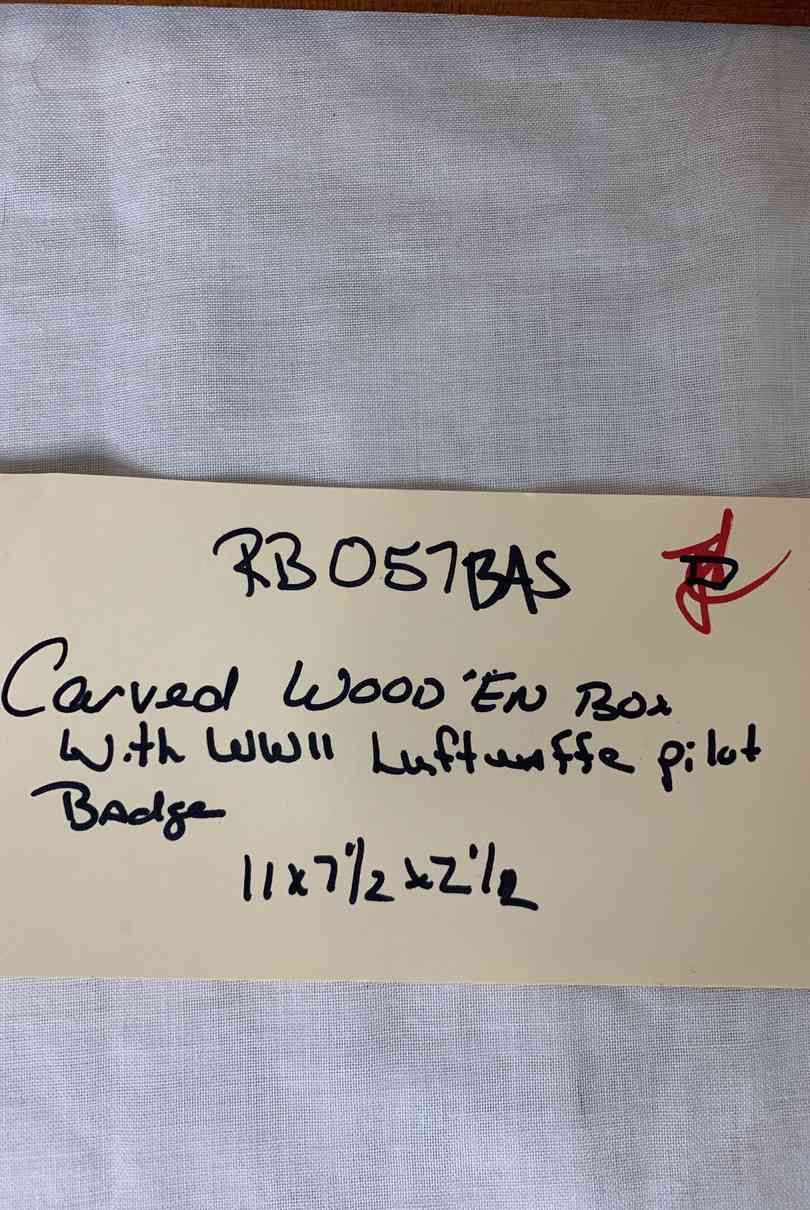 RB057BAS
Carved WOOD'EN Box
With WWII Luftwaffe pilot
Badge
11x7 1/2 x2 1/2